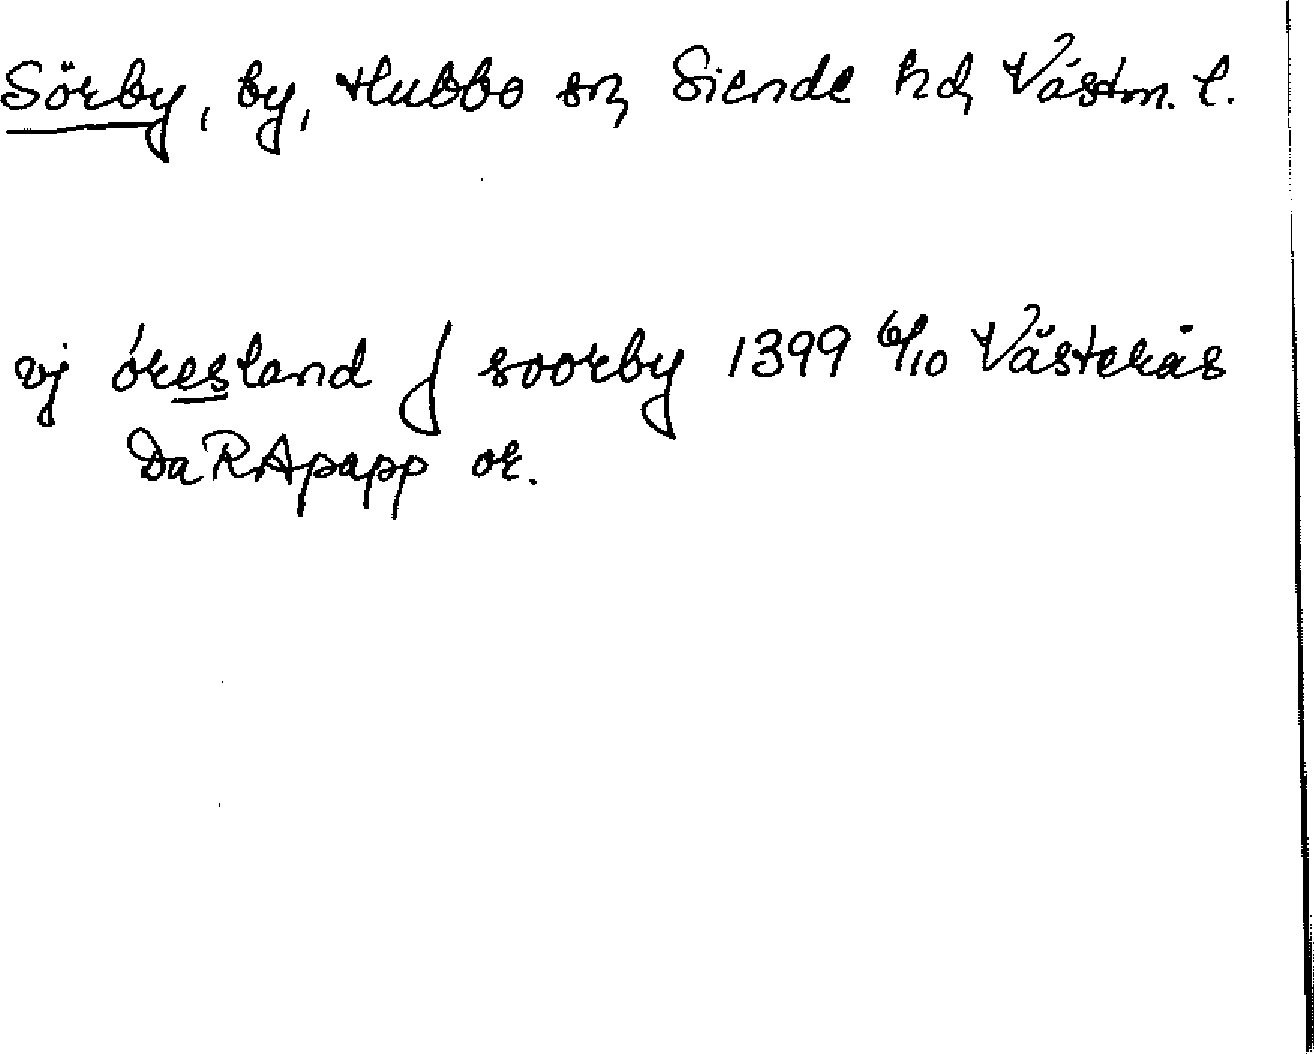 Sörby, by, Hubbo sn, Siende hd, Västm. l.
vj öresland j soorby 1399 6/10 Västerås
Da RApapp or.